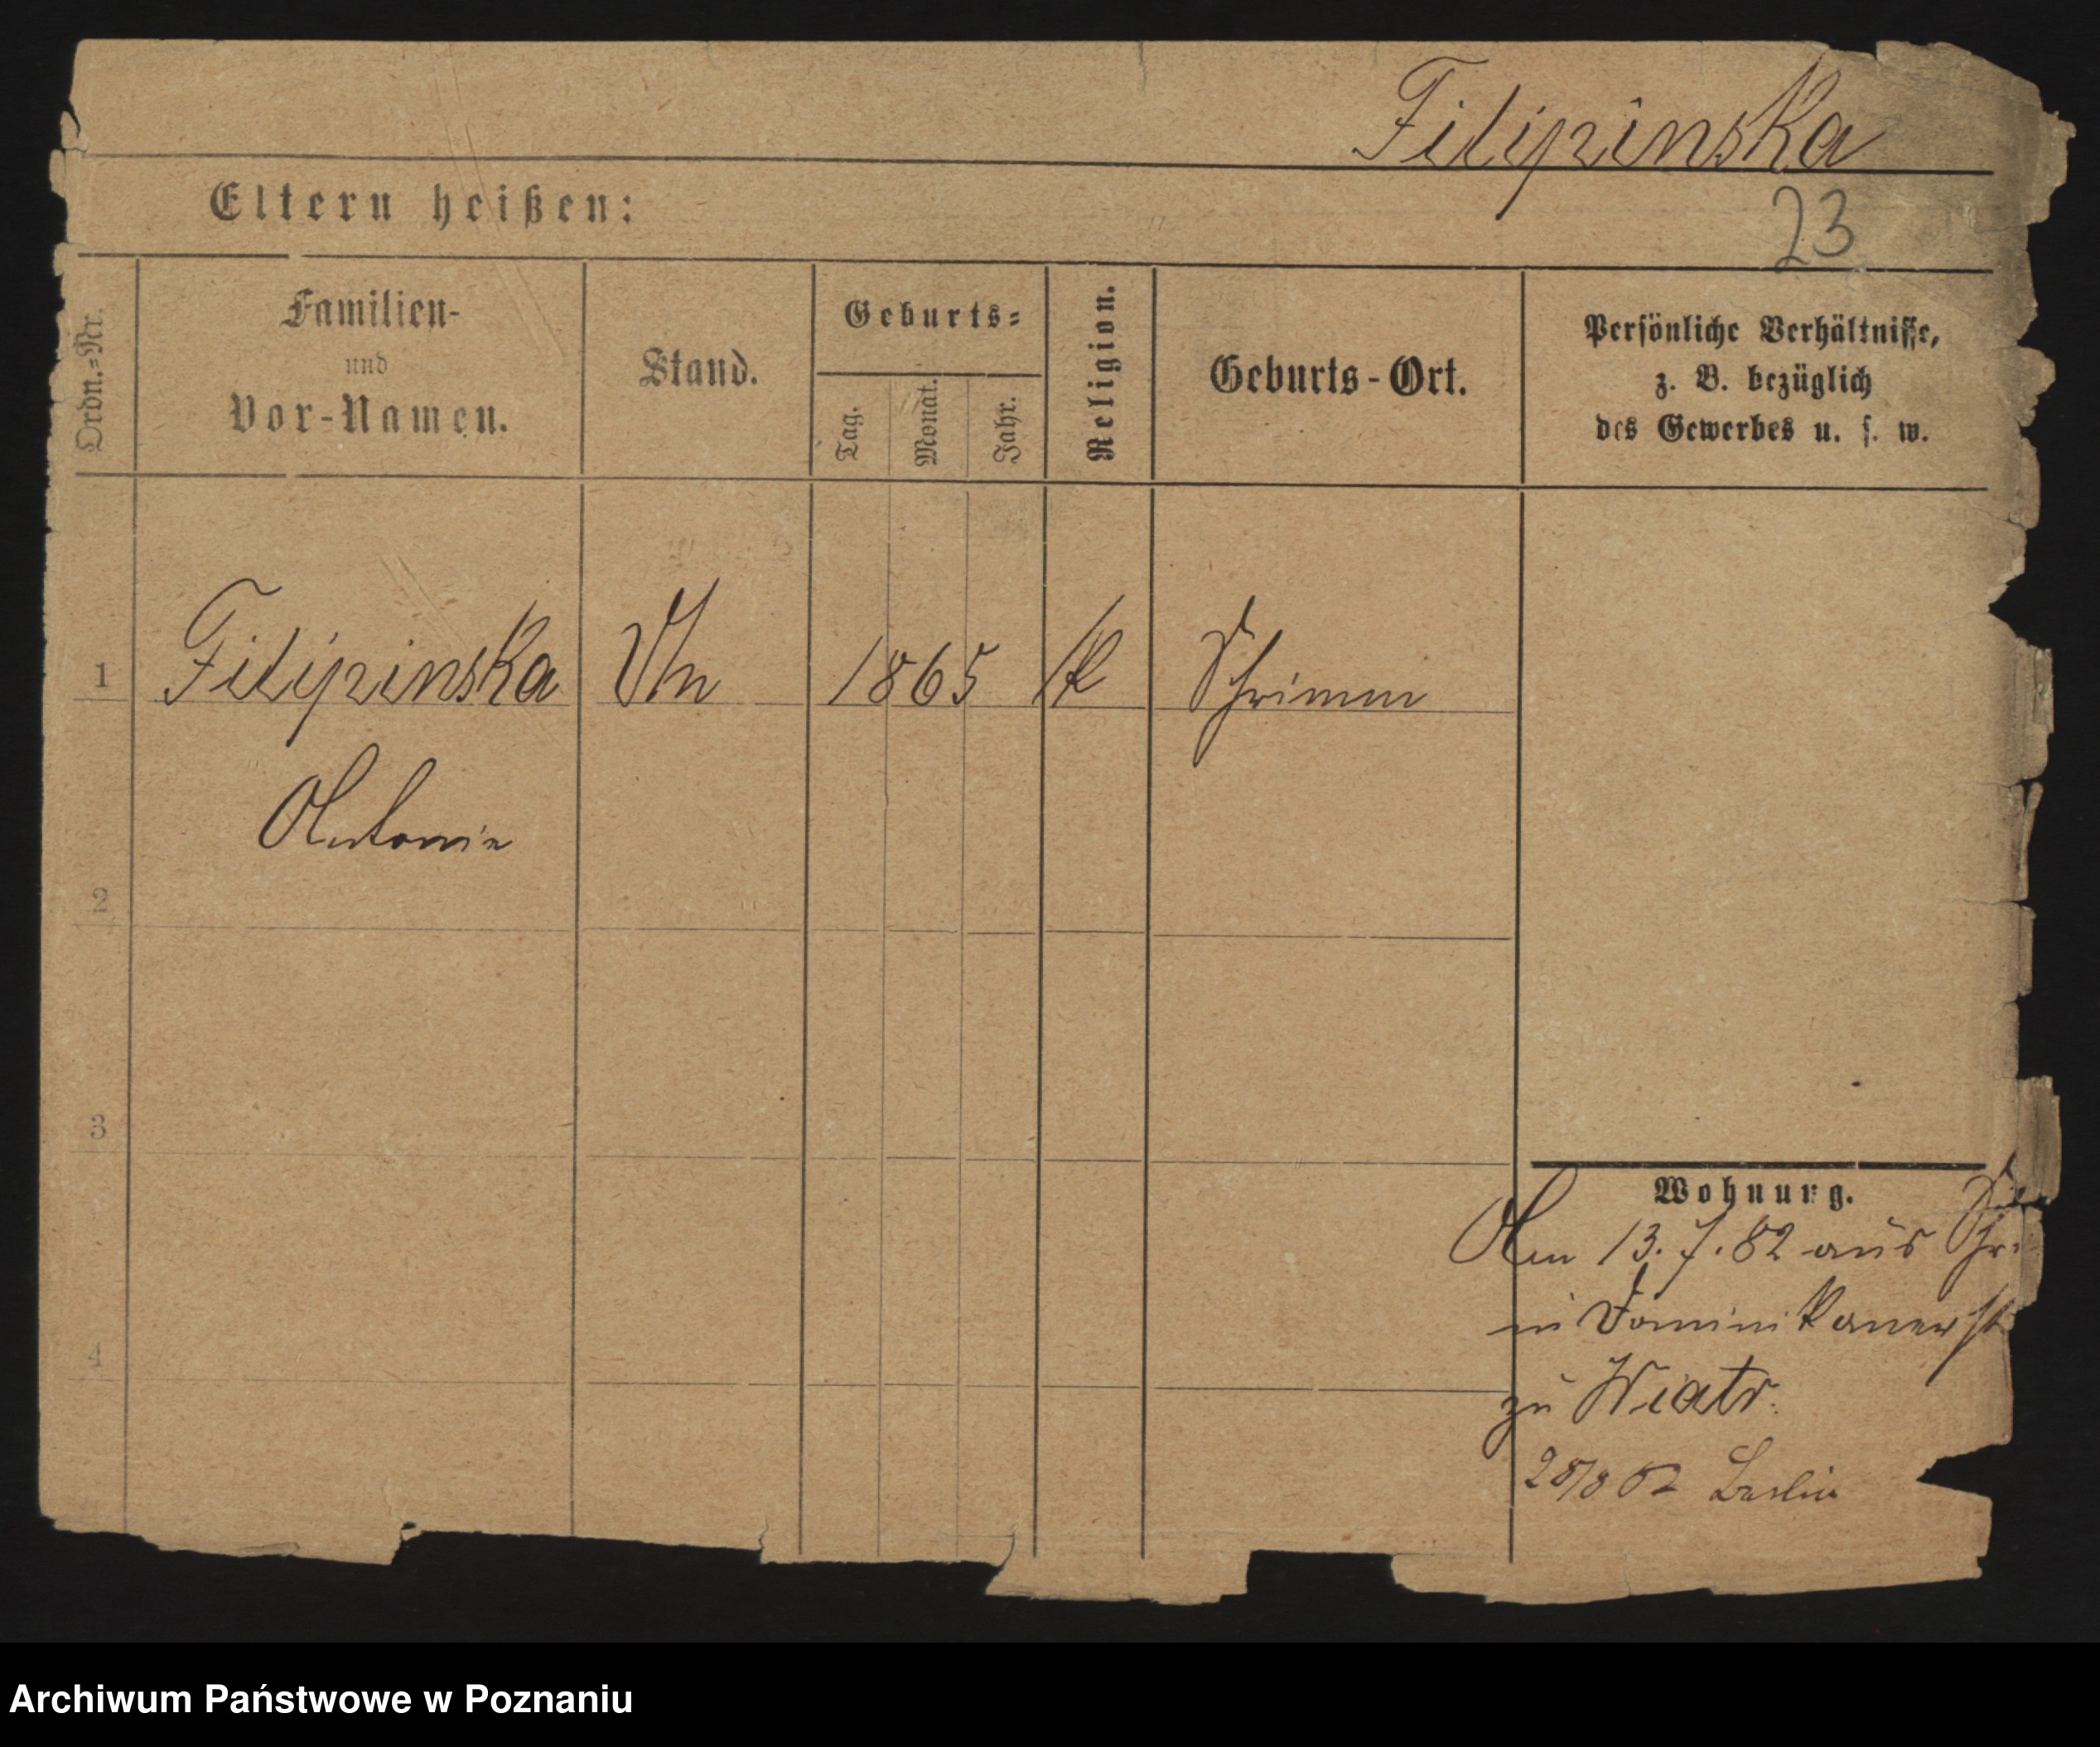 Filipinska
23
Eltern heißen:
Ordn.=Nr.
Familien-
und
Vor-Namen.
Stand.
Geburts=
Tag.
Monat.
Jahr.
Religion.
Geburts-Ort.
Persönliche Verhältnisse,
z. B. bezüglich
des Gewerbes u. s. w.
1 Filipinska 1865 k Schrimm
Antonie
2
3
4
Wohnung.
Am 13.7.82 aus Schr
in Dominikanerst
zu Wiatr.
28/8 82 Berlin
Archiwum Państwowe w Poznaniu